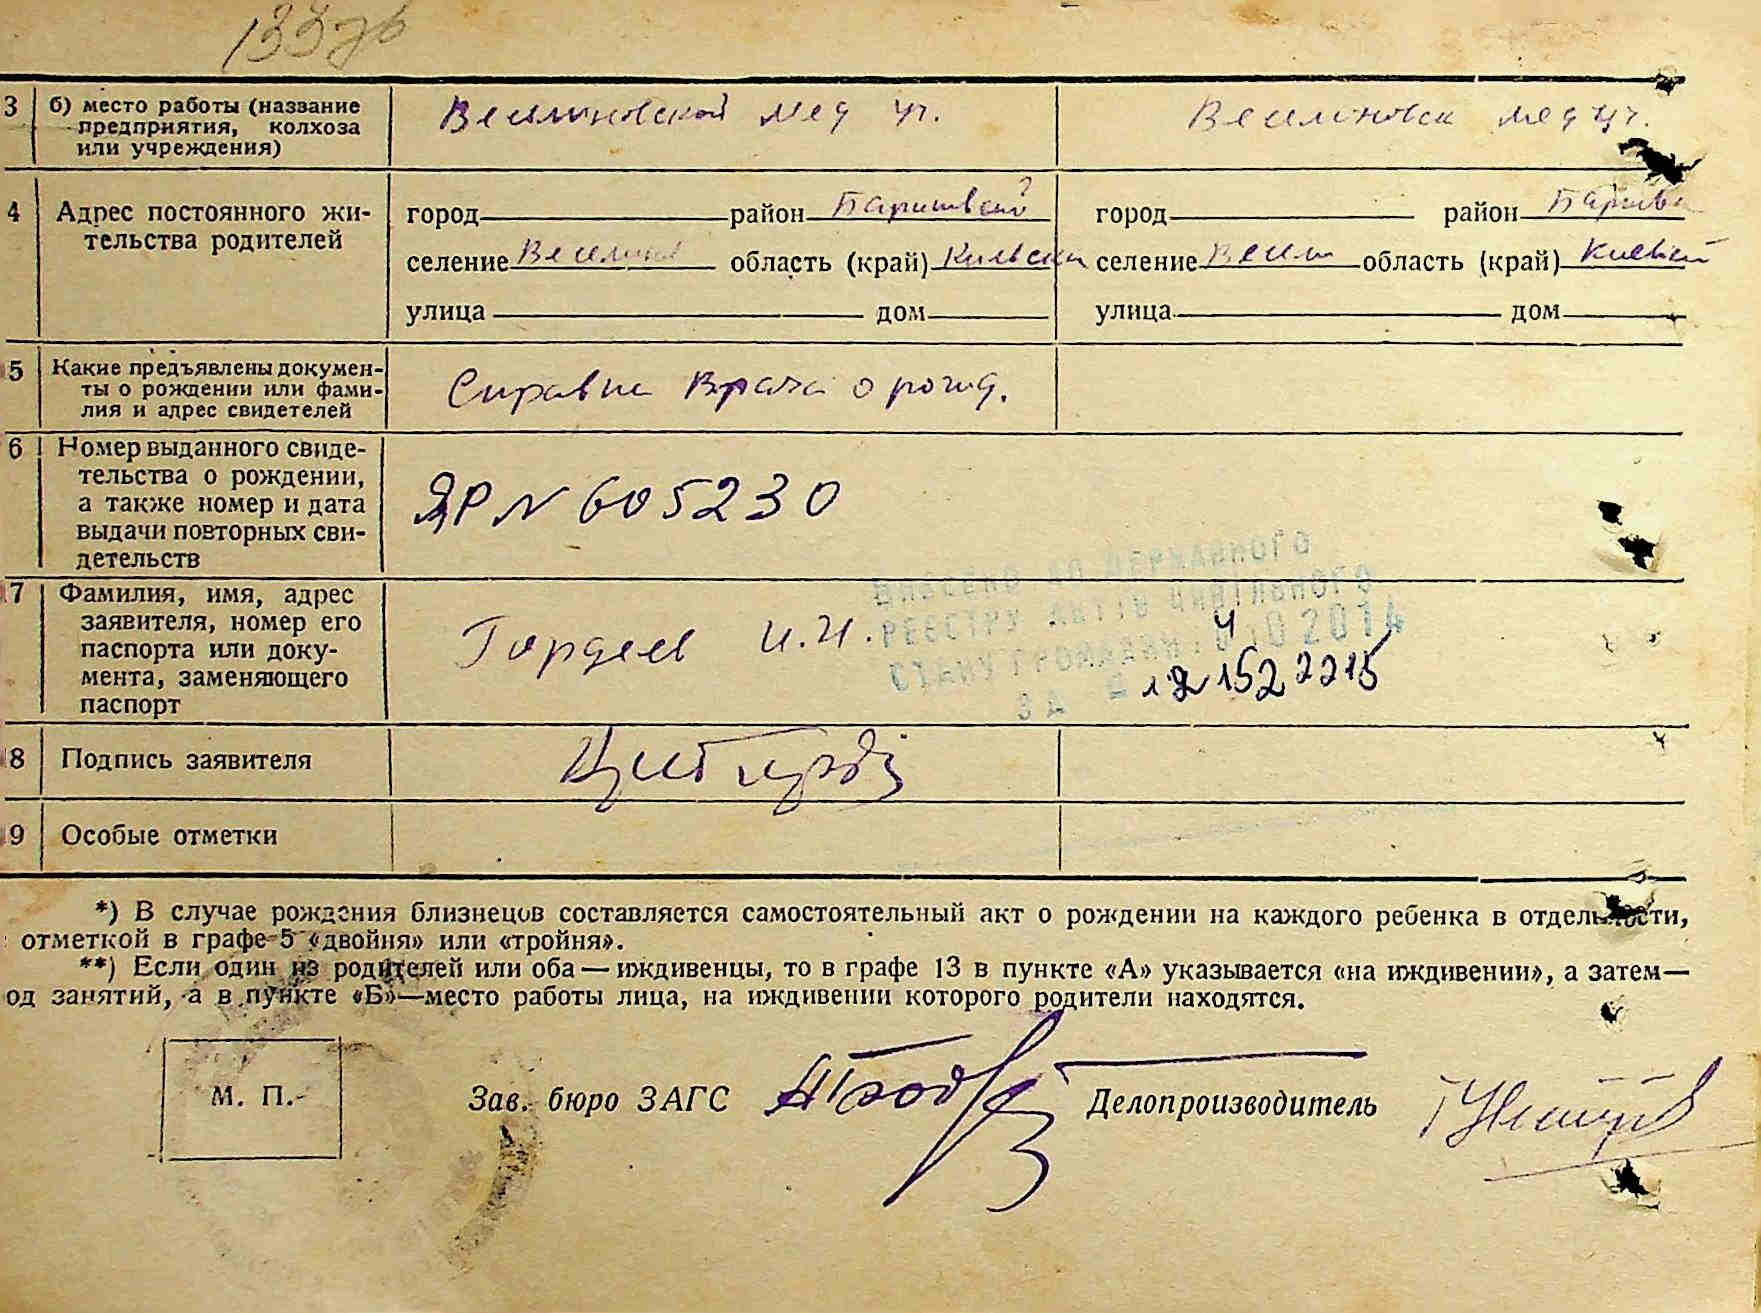 3 б) место работы (название Веселиновской мед уч. Веселиновск мед уч.
предприятия, колхоза
или учреждения)
4 Адрес постоянного жи- город район Баришевский город район
тельства родителей селение область (край) Киевск селение Весел область (край) Киевской
улица дом улица дом
5 Какие предъявлены докумен- Справка Врача о рожд.
ты о рождении или фами-
лия и адрес свидетелей
6 Номер выданного свиде- ЯР N 605230
тельства о рождении,
а также номер и дата
выдачи повторных сви-
детельств
ВНЕСЕНО ДО ДЕРЖАВНОГО
РЕЄСТРУ АКТІВ ЦИВІЛЬНОГО
СТАНУ ГРОМАДЯН 10 2014
ЗА
7 Фамилия, имя, адрес Гордеев И.И.
заявителя, номер его
паспорта или доку-
мента, заменяющего
паспорт
8 Подпись заявителя
9 Особые отметки
*) В случае рождения близнецов составляется самостоятельный акт о рождении на каждого ребенка в отдельности,
отметкой в графе 5 «двойня» или «тройня».
**) Если один из родителей или оба — иждивенцы, то в графе 13 в пункте «А» указывается «на иждивении», а затем—
од занятий, а в пункте «Б»—место работы лица, на иждивении которого родители находятся.
М. П. Зав. бюро ЗАГС Делопроизводитель